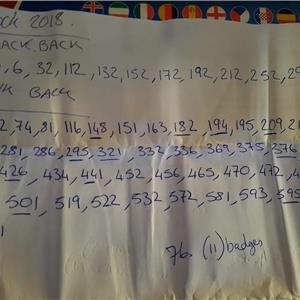 ock 2018.
ACK BACK
, 6, 32, 112, 132, 152, 172, 192, 212, 252, 29
BACK
2, 74, 81, 116, 148, 151, 163, 182, 194, 195, 209, 21
281, 286, 295, 321, 332, 336, 369, 375, 376
426, 434, 441, 452, 456, 465, 470, 472, 4
501, 519, 522, 532, 572, 581, 593, 595
76. (11) badges